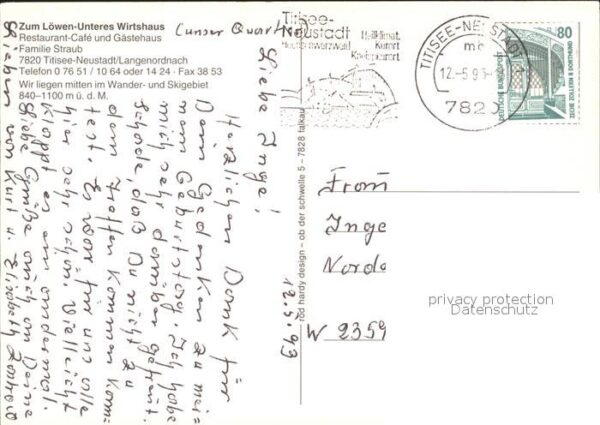 Zum Löwen-Unteres Wirtshaus
Restaurant-Café und Gästehaus
Familie Straub
7820 Titisee-Neustadt/Langenordnach
Telefon 0 76 51 / 10 64 oder 14 24 · Fax 38 53
Wir liegen mitten im Wander- und Skigebiet
840–1100 m ü. d. M.
(unser Quartier)
Titisee-
Neustadt
Hochschwarzwald
Heilklimat.
Kurort
Kneippkurort
TITISEE-NEUSTADT
12.-5.93
782
80
DEUTSCHE BUNDESPOST
ZECHE ZOLLERN II DORTMUND
12.5.93
Liebe Inge!
Herzlichen Dank für
Dein Gedenken zu mei-
nem Geburtstag. Ich habe
mich sehr darüber gefreut.
Schade daß Du nicht zu
dem Treffen kommen konn-
test. Es war für uns alle
hier sehr schön. Vielleicht
klappt es ein andermal.
Liebe Grüße auch an Deine
Lieben von Kurt u. Elisabeth
rod hardy design – ob der schwelle 5 – 7828 falkau
From
Inge
Norde
W 2359
privacy protection
Datenschutz